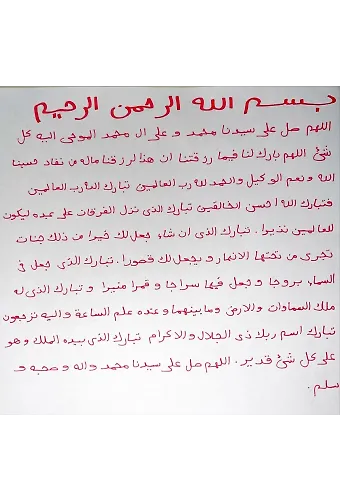 بسم الله الرحمن الرحيم
اللهم صل على سيدنا محمد و على ال محمد الموحى اليه كل
شئ اللهم بارك لنا فيما رزقتنا ان هذا لرزقنا ماله من نفاد حسبنا
الله و نعم الوكيل والحمد لله رب العالمين تبارك الله رب العالمين
فتبارك الله احسن الخالقين تبارك الذى نزل الفرقان على عبده ليكون
للعالمين نذيرا . تبارك الذى ان شاء جعل لك خيرا من ذلك جنات
تجرى من تحتها الانهار و يجعل لك قصورا . تبارك الذى جعل فى
السماء بروجا و جعل فيها سراجا و قمرا منيرا و تبارك الذى له
ملك السماوات والارض وما بينهما و عنده علم الساعة و اليه ترجعون
تبارك اسم ربك ذى الجلال والاكرام تبارك الذى بيده الملك و هو
على كل شئ قدير . اللهم صل على سيدنا محمد واله و صحبه و
سلم .